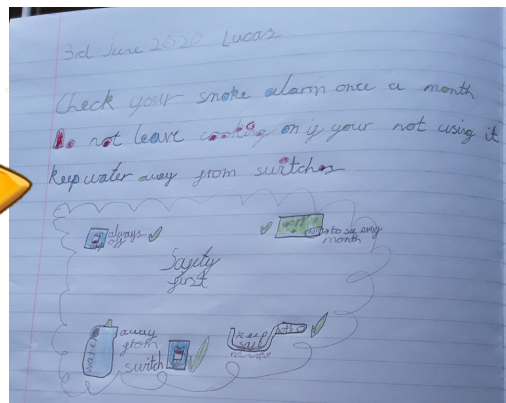 3rd June 2020 Lucas
Check your smoke alarm once a month
Do not leave cooking on if your not using it
keep water away from switches
always off
to see evry month
Safety first
water
away from switch
keep safe
no water